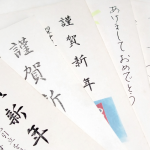 あけましておめでとう
謹賀新年
謹賀新
新年